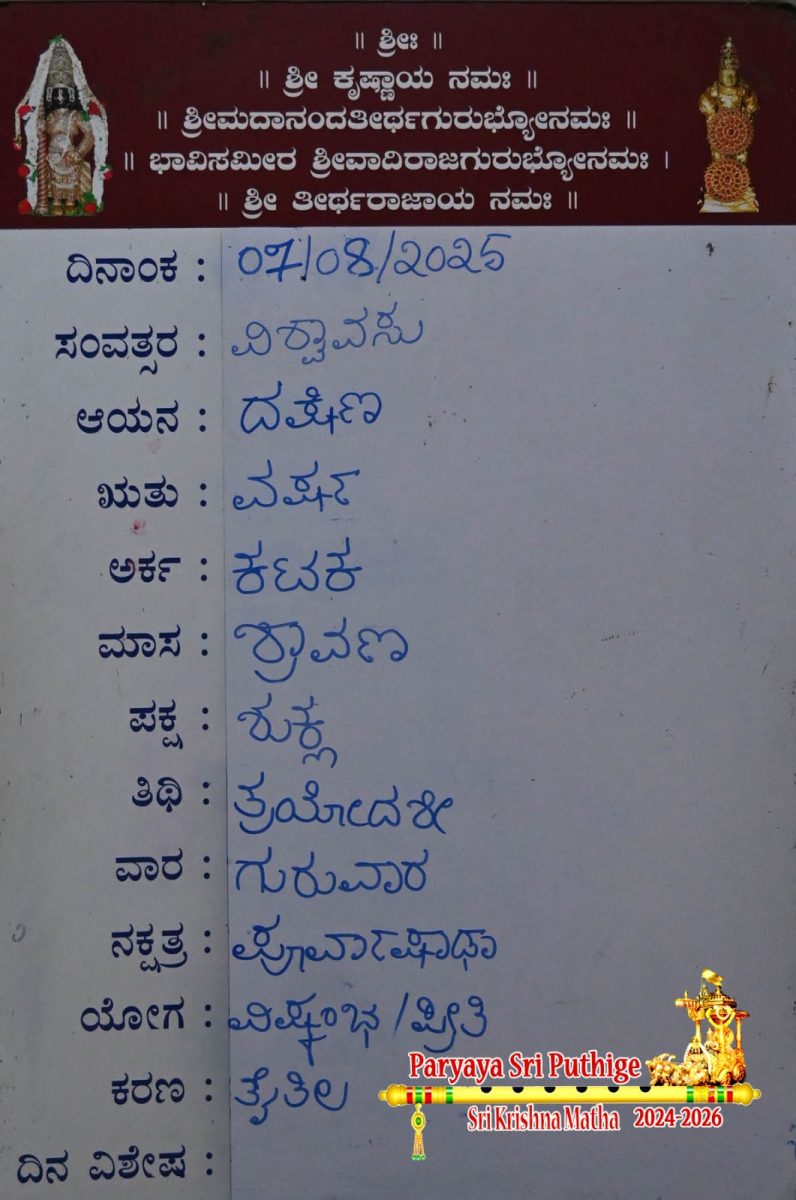 ॥ ಶ್ರೀಃ ॥
॥ ಶ್ರೀ ಕೃಷ್ಣಾಯ ನಮಃ ॥
॥ ಶ್ರೀಮದಾನಂದತೀರ್ಥಗುರುಭ್ಯೋನಮಃ ॥
॥ ಭಾವಿಸಮೀರ ಶ್ರೀವಾದಿರಾಜಗುರುಭ್ಯೋನಮಃ ।
॥ ಶ್ರೀ ತೀರ್ಥರಾಜಾಯ ನಮಃ ॥
ದಿನಾಂಕ : 07/08/2025
ಸಂವತ್ಸರ : ವಿಶ್ವಾವಸು
ಆಯನ : ದಕ್ಷಿಣ
ಋತು : ವರ್ಷ
ಅರ್ಕ : ಕಟಕ
ಮಾಸ : ಶ್ರಾವಣ
ಪಕ್ಷ : ಶುಕ್ಲ
ತಿಥಿ : ತ್ರಯೋದಶೀ
ವಾರ : ಗುರುವಾರ
ನಕ್ಷತ್ರ : ಪೂರ್ವಾಷಾಢಾ
ಯೋಗ : ವಿಷ್ಕಂಭ/ಪ್ರೀತಿ
ಕರಣ : ತೈತಿಲ
ದಿನ ವಿಶೇಷ :
Paryaya Sri Puthige
Sri Krishna Matha 2024-2026